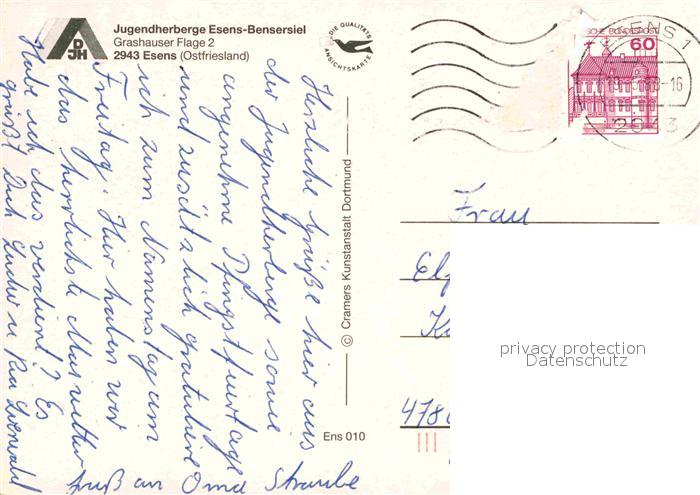 DJH
Jugendherberge Esens-Bensersiel
Grashauser Flage 2
2943 Esens (Ostfriesland)
DIE QUALITÄTS
ANSICHTSKARTE
Herzliche Grüße hier aus
der Jugendherberge sowie
angenehme Pfingstfeiertage
und zusätzlich gratuliere
ich zum Namenstag am
Freitag. Hier haben wir
das herrlichste Maiwetter
Habe ich das verdient? Es
grüßt Dich
Gruß an Oma Straube
© Cramers Kunstanstalt Dortmund
Ens 010
ESENS 1
-16
2943
60
Frau
478
privacy protection
Datenschutz